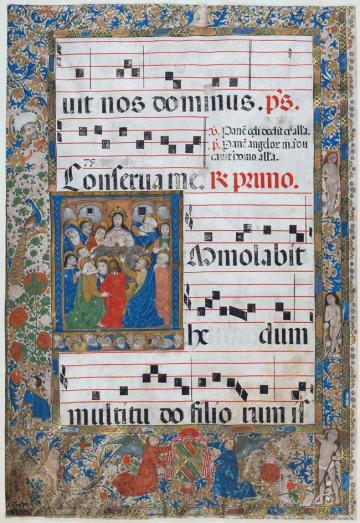 uit nos dominus. p̄s.
℣. Panē celi dedit eis alla.
℟. Panē angelor̄ mādu
cauit homo alla.
75
Conserua me. ℟ primo.
Immolabit
he dum
multitu do filio rum is